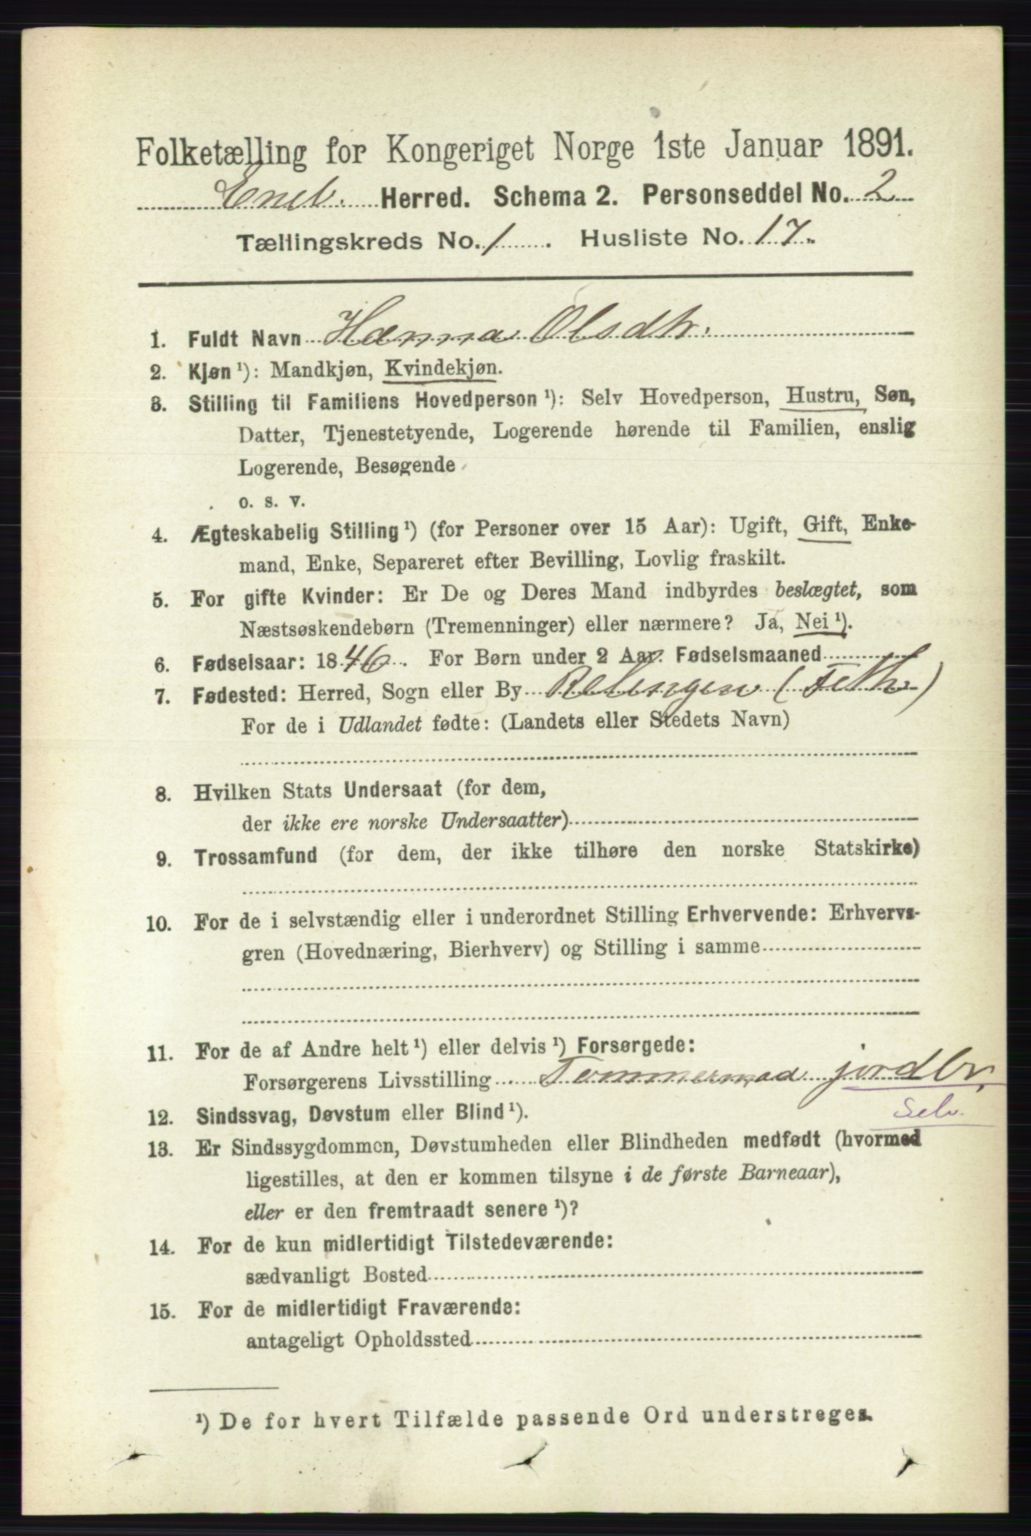 Folketælling for Kongeriget Norge 1ste Januar 1891.
Eneb. Herred. Schema 2. Personseddel No. 2
Tællingskreds No. 1 . Husliste No. 17.
1. Fuldt Navn Hanna Olsdtr.
2. Kjøn ¹): Mandkjøn, Kvindekjøn.
3. Stilling til Familiens Hovedperson ¹): Selv Hovedperson, Hustru, Søn,
Datter, Tjenestetyende, Logerende hørende til Familien, enslig
Logerende, Besøgende
o. s. v.
4. Ægteskabelig Stilling ¹) (for Personer over 15 Aar): Ugift, Gift, Enke-
mand, Enke, Separeret efter Bevilling, Lovlig fraskilt.
5. For gifte Kvinder: Er De og Deres Mand indbyrdes beslægtet, som
Næstsøskendebørn (Tremenninger) eller nærmere? Ja, Nei ¹).
6. Fødselsaar: 1846. For Børn under 2 Aar Fødselsmaaned
7. Fødested: Herred, Sogn eller By Relingen (Feth)
For de i Udlandet fødte: (Landets eller Stedets Navn)
8. Hvilken Stats Undersaat (for dem,
der ikke ere norske Undersaatter)
9. Trossamfund (for dem, der ikke tilhøre den norske Statskirke)
10. For de i selvstændig eller i underordnet Stilling Erhvervende: Erhvervs-
gren (Hovednæring, Bierhverv) og Stilling i samme
11. For de af Andre helt ¹) eller delvis ¹) Forsørgede:
Forsørgerens Livsstilling Tommermad jordbr.
Selv.
12. Sindssvag, Døvstum eller Blind ¹).
13. Er Sindssygdommen, Døvstumheden eller Blindheden medfødt (hvormed
ligestilles, at den er kommen tilsyne i de første Barneaar),
eller er den fremtraadt senere ¹)?
14. For de kun midlertidigt Tilstedeværende:
sædvanligt Bosted
15. For de midlertidigt Fraværende:
antageligt Opholdssted
¹) De for hvert Tilfælde passende Ord understreges.